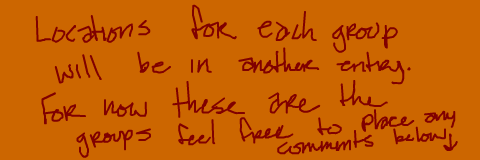 Locations for each group
will be in another entry.
For now these are the
groups feel free to place any
comments below↓